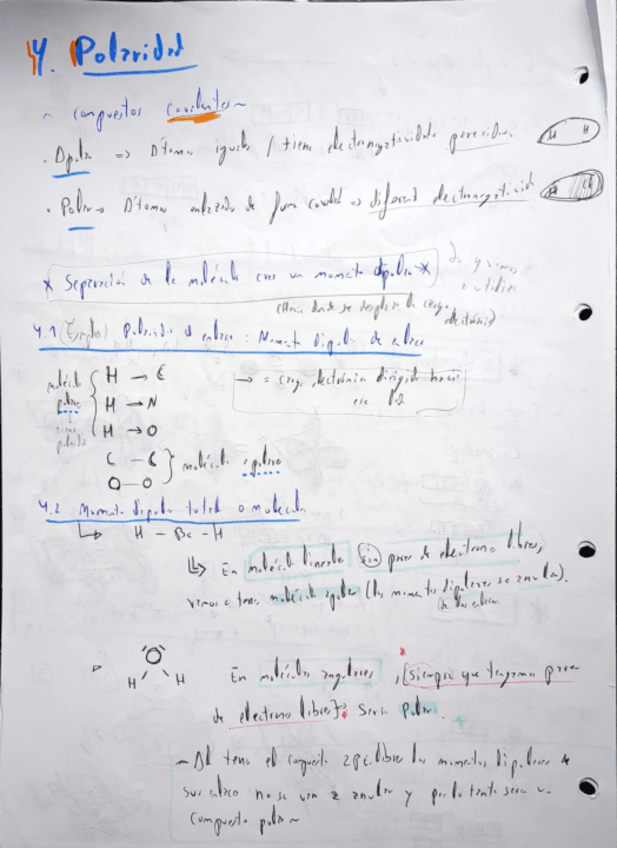 4. Polaridad
~ compuestos covalentes ~
· Apolar => Átomos iguales / tienen electronegatividades parecidas
H H
· Polar => Átomos enlazados de forma covalente => diferente electronegatividad
* Separación de la molécula crea un momento dipolar *
(Hacia donde se desplaza la carga electrónica)
4.1 (Ejemplo) Polaridad de enlace : Momento dipolar de enlace
molécula polar
H → C
H → N
H → O
→ = carga electrónica dirigida hacia ese lado
C – C
O – O
molécula apolar
4.2 Momento dipolar total o molécula
H – Be – H
En molécula lineales sin pares de electrones libres,
vamos a tener molécula apolar (los momentos dipolares se anulan).
de los enlaces
O
H H
En moléculas angulares, [siempre que tengamos pares
de electrones libres] Sería Polar.
~ Al tener el compuesto 2 p.e. libres los momentos dipolares de
sus enlaces no se van a anular y por lo tanto será un
compuesto polar ~